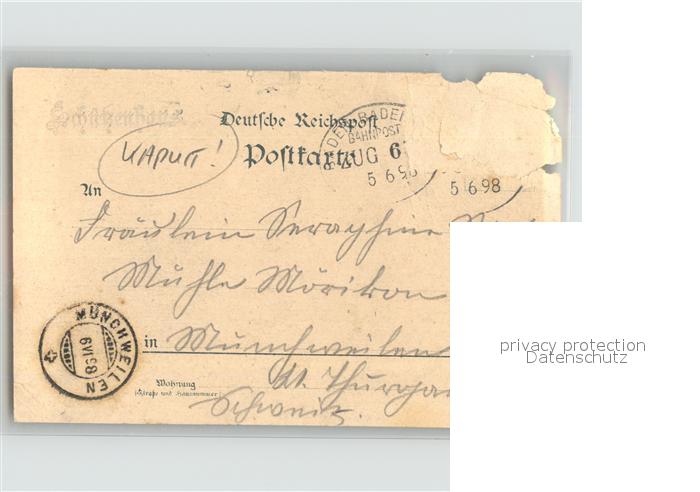 Schützenhaus
Deutsche Reichspost
Postkarte
KAPUTT!
BADEN-BADEN
BAHNPOST
ZUG 6
5 6 98
5 6 98
An
Fräulein Seraphine
Mühle Mörikon
in Münchweilen
Kt. Thurgau
Schweiz.
Wohnung
(Straße und Hausnummer)
MÜNCHWEILEN
6 VI 98
privacy protection
Datenschutz